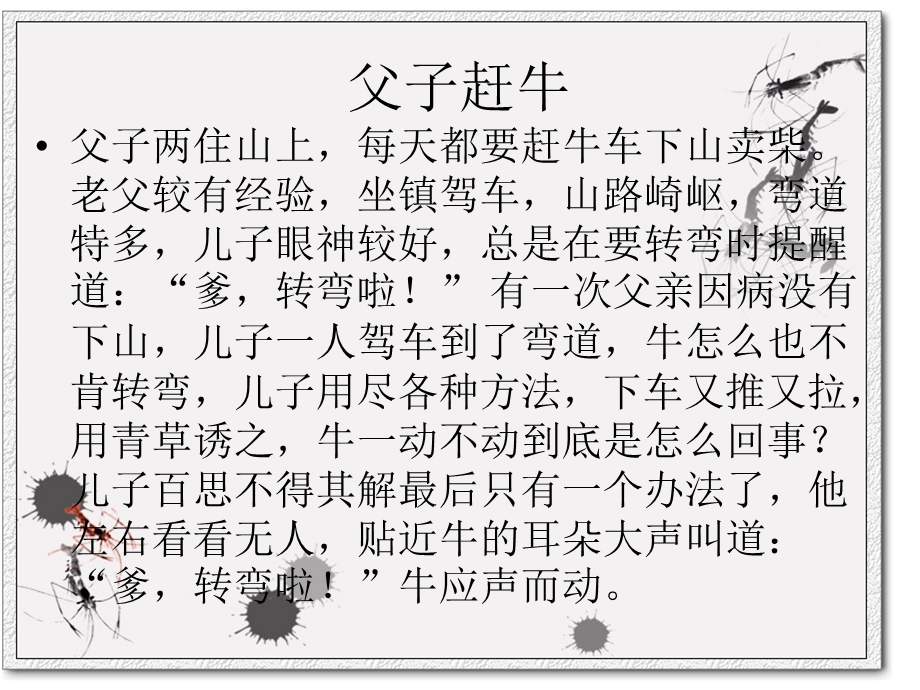 父子赶牛
• 父子两住山上，每天都要赶牛车下山卖柴。
老父较有经验，坐镇驾车，山路崎岖，弯道
特多，儿子眼神较好，总是在要转弯时提醒
道：“爹，转弯啦！” 有一次父亲因病没有
下山，儿子一人驾车到了弯道，牛怎么也不
肯转弯，儿子用尽各种方法，下车又推又拉，
用青草诱之，牛一动不动到底是怎么回事？
儿子百思不得其解最后只有一个办法了，他
左右看看无人，贴近牛的耳朵大声叫道：
“爹，转弯啦！”牛应声而动。